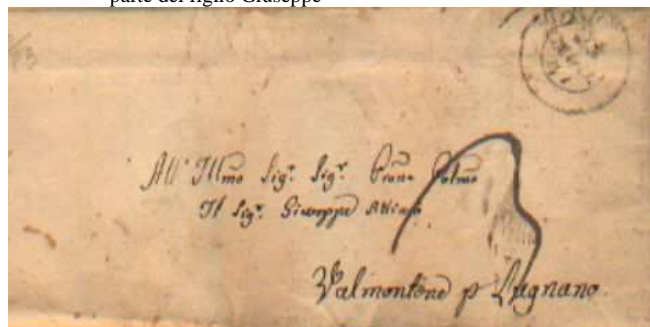 parte del figlio Giuseppe
All' Illmo Sig.r Sig.r Prone Colmo
Il Sig.r Giuseppe
Valmontone p Lugnano.